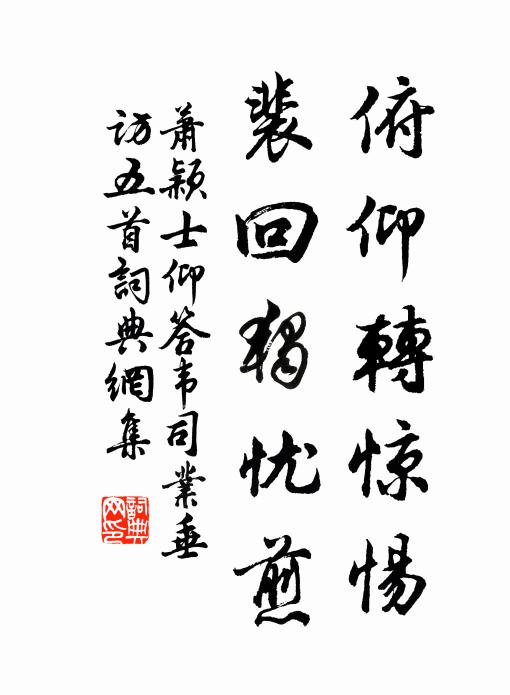 俯仰轉惊惕
裴回獨忧煎
萧颖士仰答韦司業垂
访五首詞典網集
詞典網印